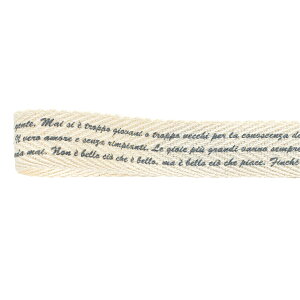 gente. Mai si è troppo giovani o troppo vecchi per la conoscenza d
vero amore e senza rimpianti. Le gioie più grandi vanno sempre
mai. Non è bello ciò che è bello, ma è bello ciò che piace. Finchè